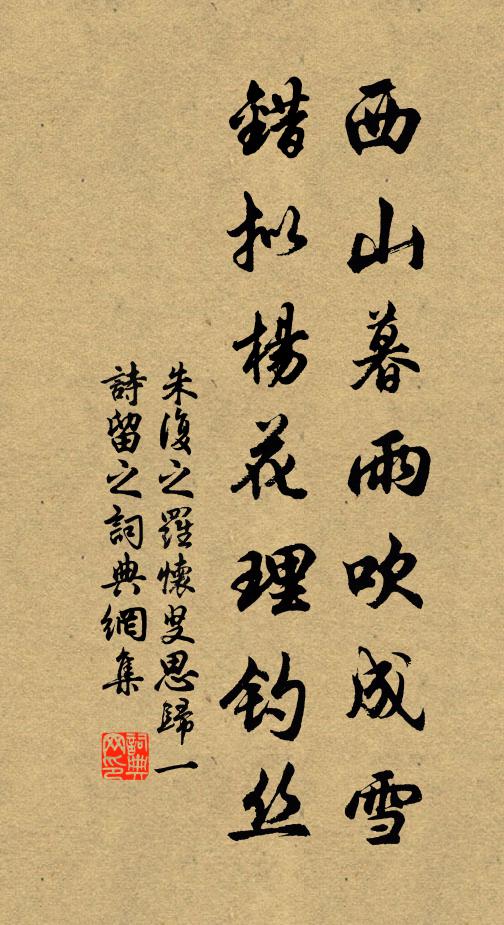 西山暮雨吹成雪
錯拟楊花理钓丝
朱復之羅懷叟思歸一
詩留之詞典網集
詞典网印